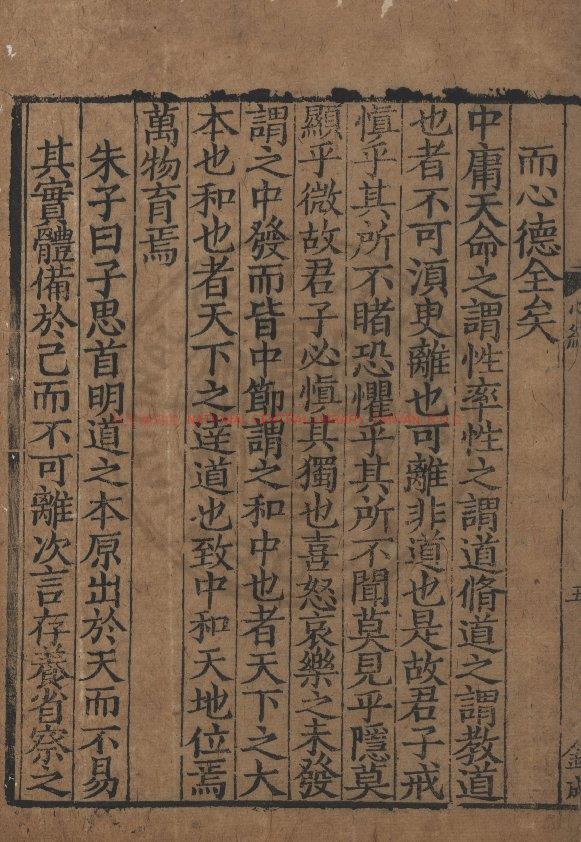 而心德全矣
中庸天命之謂性率性之謂道脩道之謂教道
也者不可湏臾離也可離非道也是故君子戒
慎乎其所不睹恐懼乎其所不聞莫見乎隱莫
顯乎微故君子必慎其獨也喜怒哀樂之未發
謂之中發而皆中節謂之和中也者天下之大
本也和也者天下之逹道也致中和天地位焉
萬物育焉
朱子曰子思首明道之本原出於天而不易
其實體備於己而不可離次言存養省察之